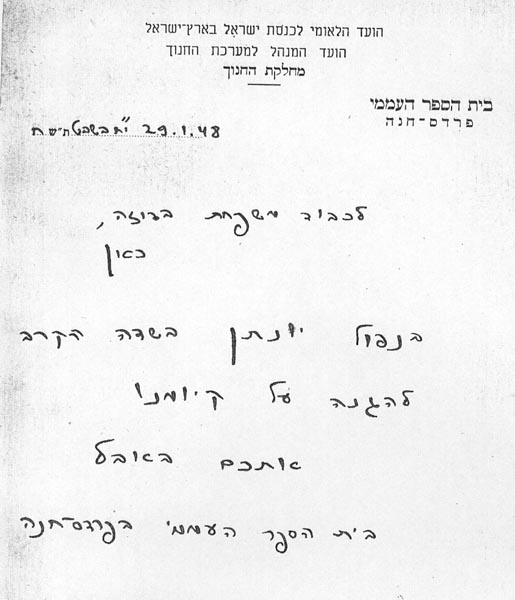 הועד הלאומי לכנסת ישראל בארץ־ישראל
הועד המנהל למערכת החנוך
מחלקת החנוך
בית הספר העממי
פרדס־חנה
29.1.48 י"ח בשבט ת"ש ח
לכבוד משפחת ברוזה,
כאן
בנפול יונתן בשדה הקרב
להגנה על קיומנו
אתכם באבל
בית הספר העממי בפרדס־חנה